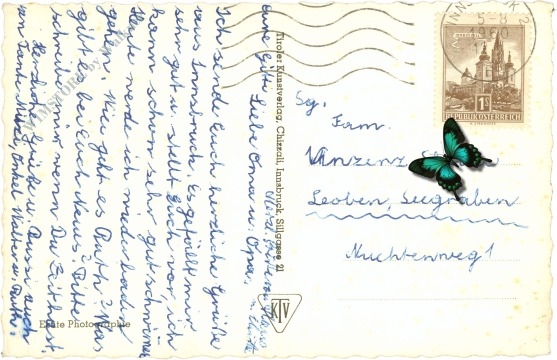 Liebe Oma u. Opa,
Ich sende Euch herzliche Grüße
aus Innsbruck. Es gefällt mir
sehr gut u. stellt Euch vor, ich
kann schon sehr gut schwimmen
Heute werd ich wieder baden
gehen. Wie geht es Ruth? Was
gibt es bei Euch Neues? Bitte
schreib mir wenn Du Zeit hast.
Herzliche Grüße u. Bussi auch
von Tante Mitzi, Onkel Walter u. Ruth.
Tiroler Kunstverlag, Chizzali, Innsbruck, Sillgasse 21
Echte Photographie
KTV
INNSBRUCK 2
5-8
1S
REPUBLIK ÖSTERREICH
Fam.
Vinzenz
Leoben, Seegraben
1